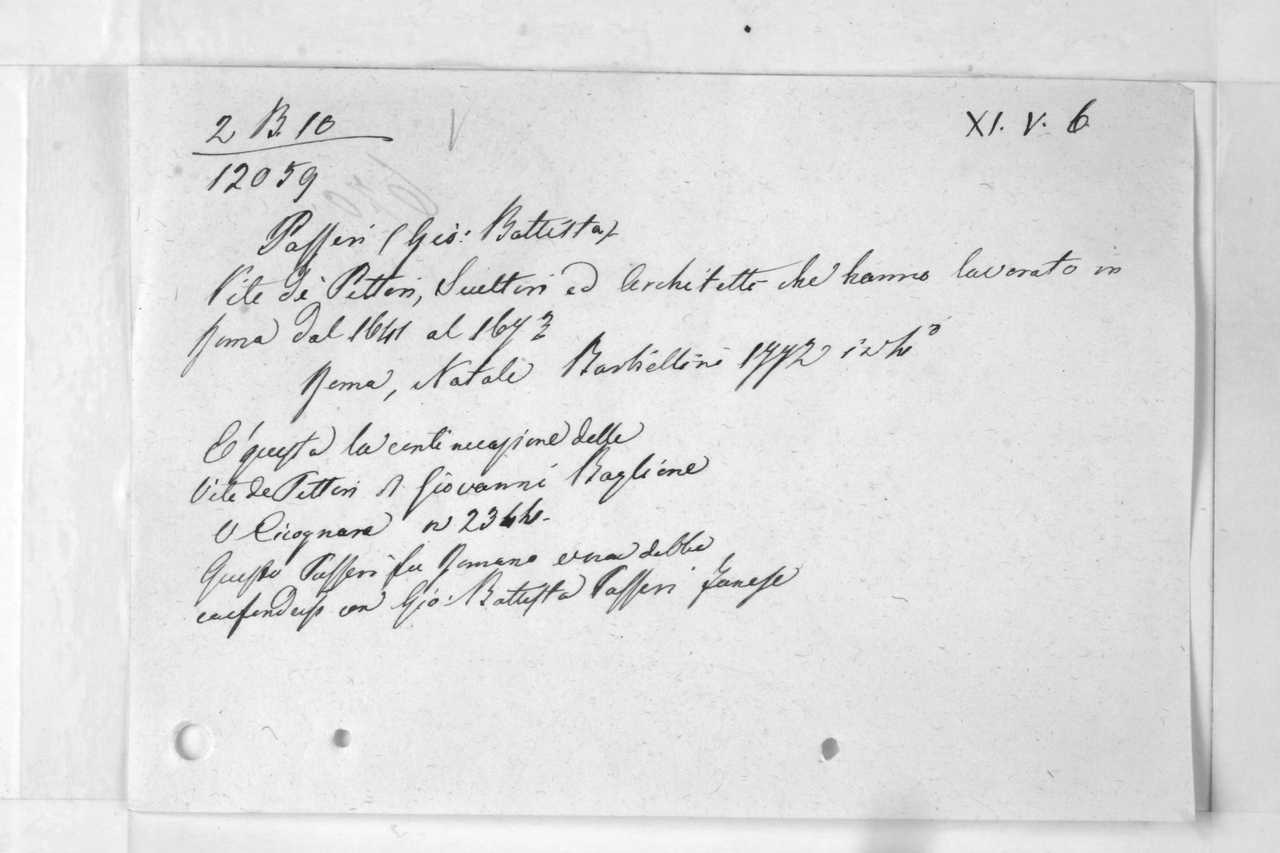 2 B. 10
XI. V. 6
V
12059
Passeri (Gio: Battista)
Vite de' Pittori, Scultori ed Architetti che hanno lavorato in
Roma dal 1641 al 1673
Roma, Natale Barbiellini 1772 in 4º
E' questa la continuazione delle
Vite de Pittori di Giovanni Baglione
V Cicognara n 2344.
Questo Passeri fu Romano e non debbe
confondersi con Gio: Battista Passeri